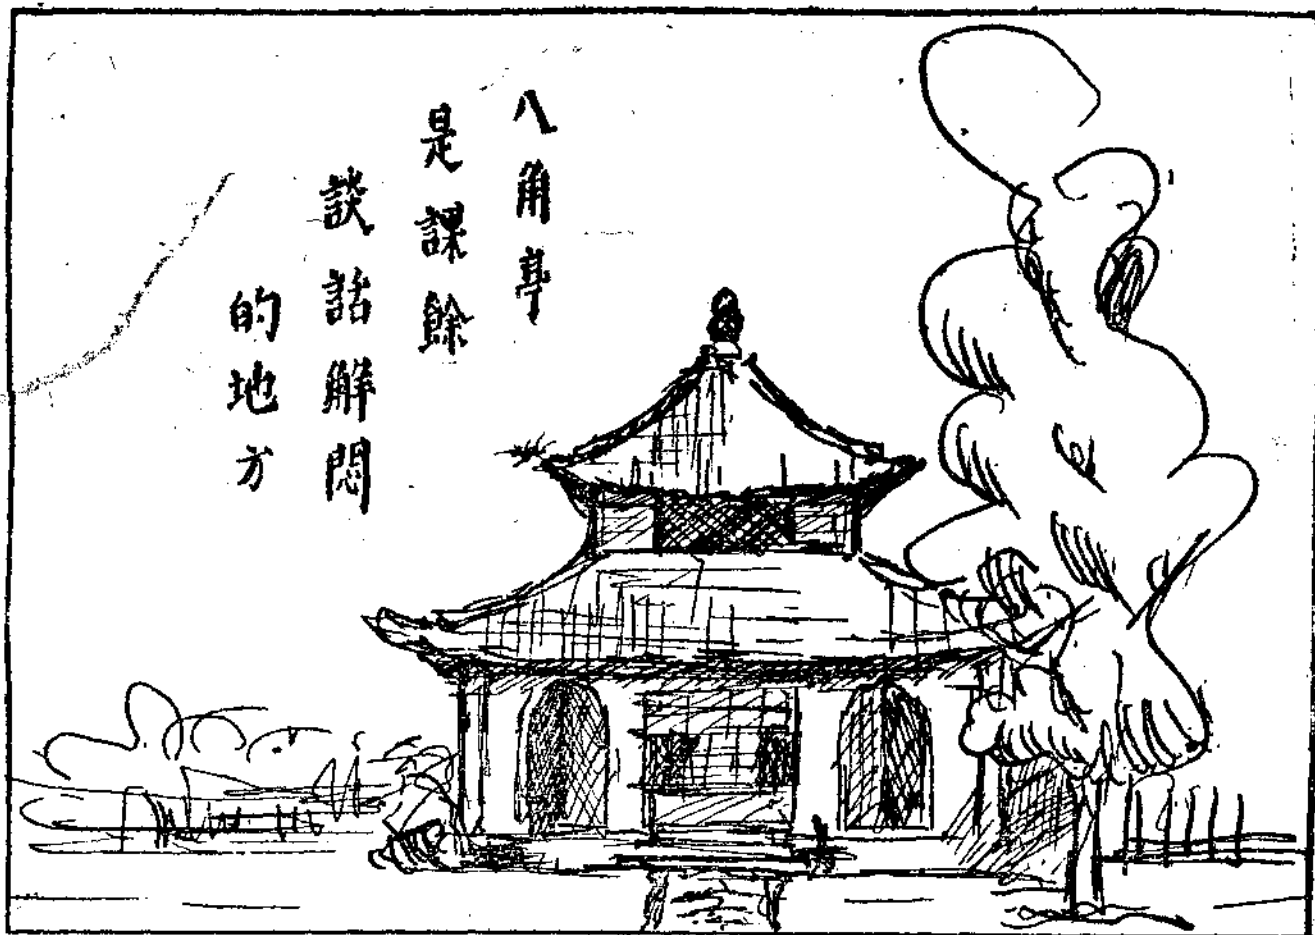 八角亭
是課餘
談話解悶
的地方